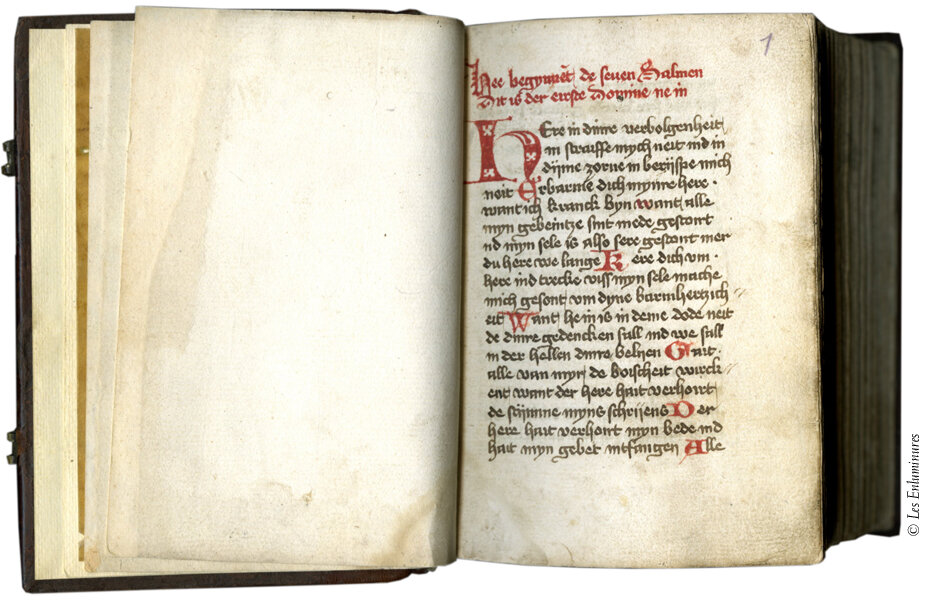 1
Hee begynnet de seven Salmen
Dit is der eirste Domine ne in
HEre in dinre verbolgenheit
in straiffe mych neit ind in
dijme zorne in berijspe mich
neit Erbarme dich myme here ·
want ich kranck byn want alle
myn gebeintze sint mede gestoirt
nd myn sele is also sere gestoirt mer
du here we lange Kere dich vm ·
here ind trecke viss myn sele mache
mich gesont vm dyne barmhertzich
eit Want hein is in deme dode neit
de dinre gedencken sall ind we sall
in der hellen dinre belijen Gait ·
alle van myr de boischeit wirck
ent want der here hait verhoirt
de stijmme myns schrijens Der
here hait verhoirt myn bede ind
hait myn gebet intfangen Alle
© Les Enluminures